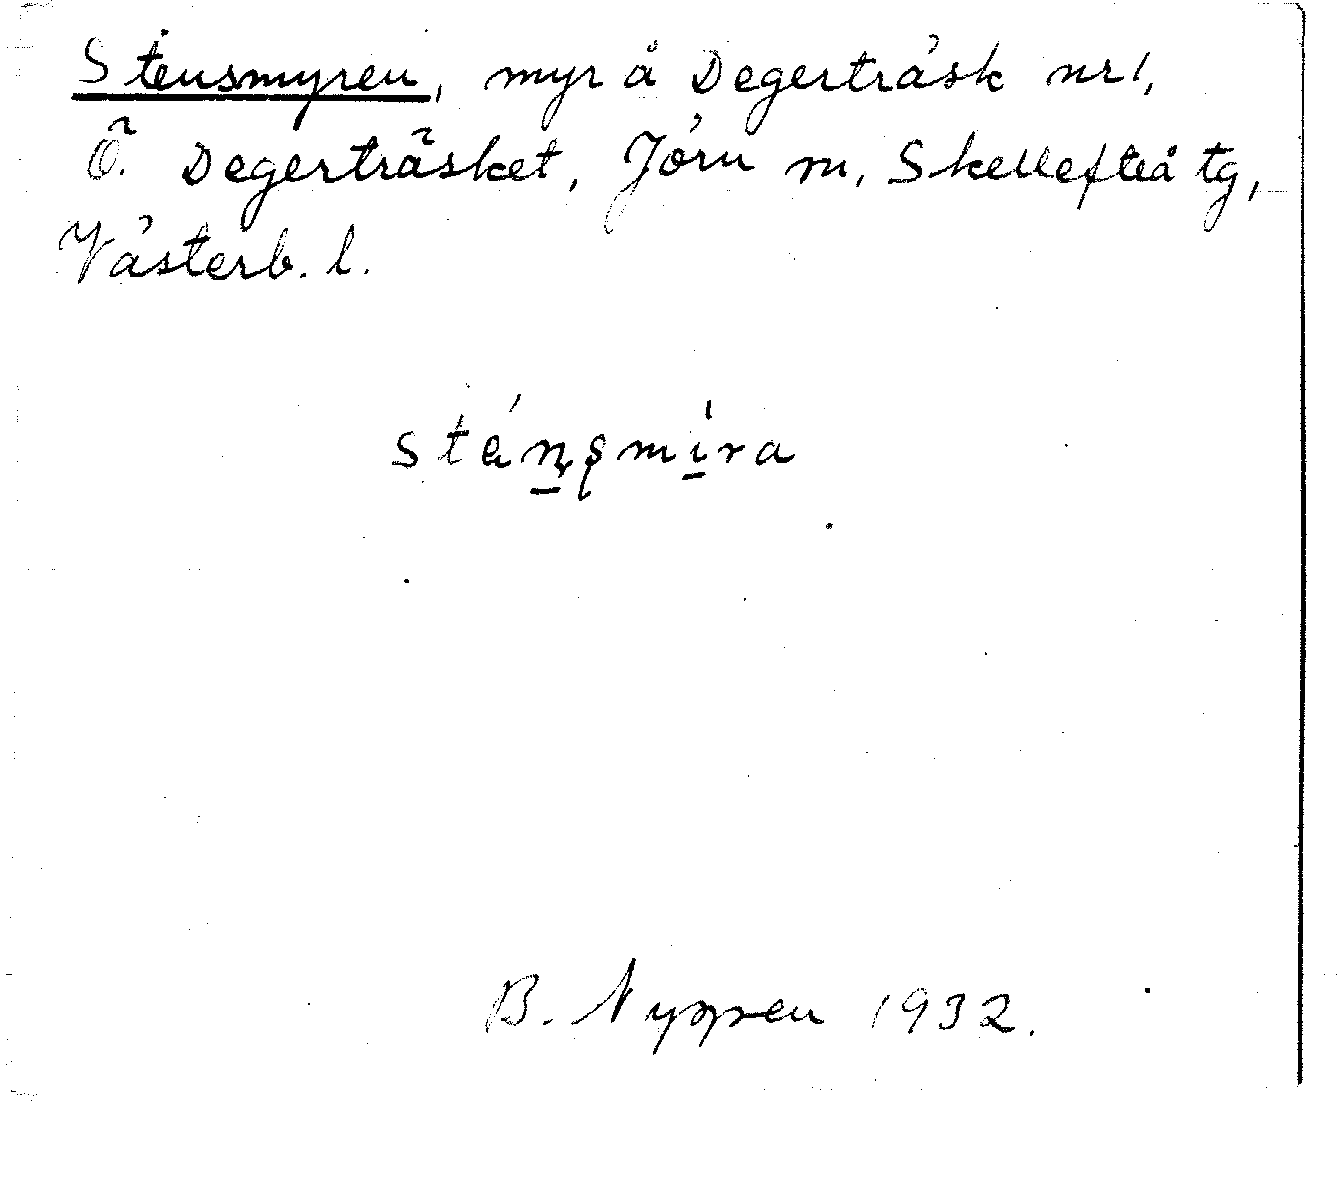 Stensmyren, myr å Degerträsk nr 1,
Ö. Degerträsket, Jörn sn, Skellefteå tg,
Västerb. l.
B. Nyppen 1932.